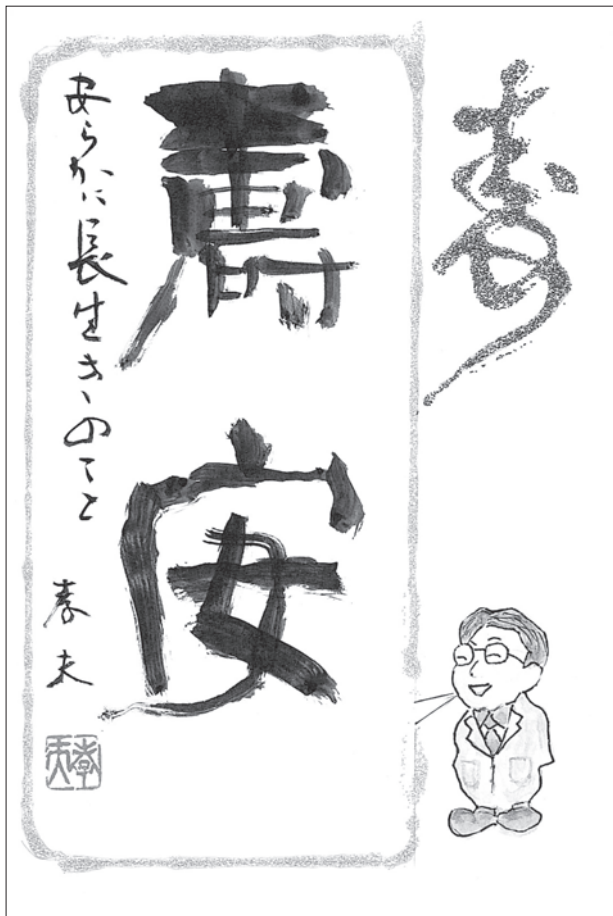 寿
壽安
安らかに長生きのこと
孝夫
孝夫